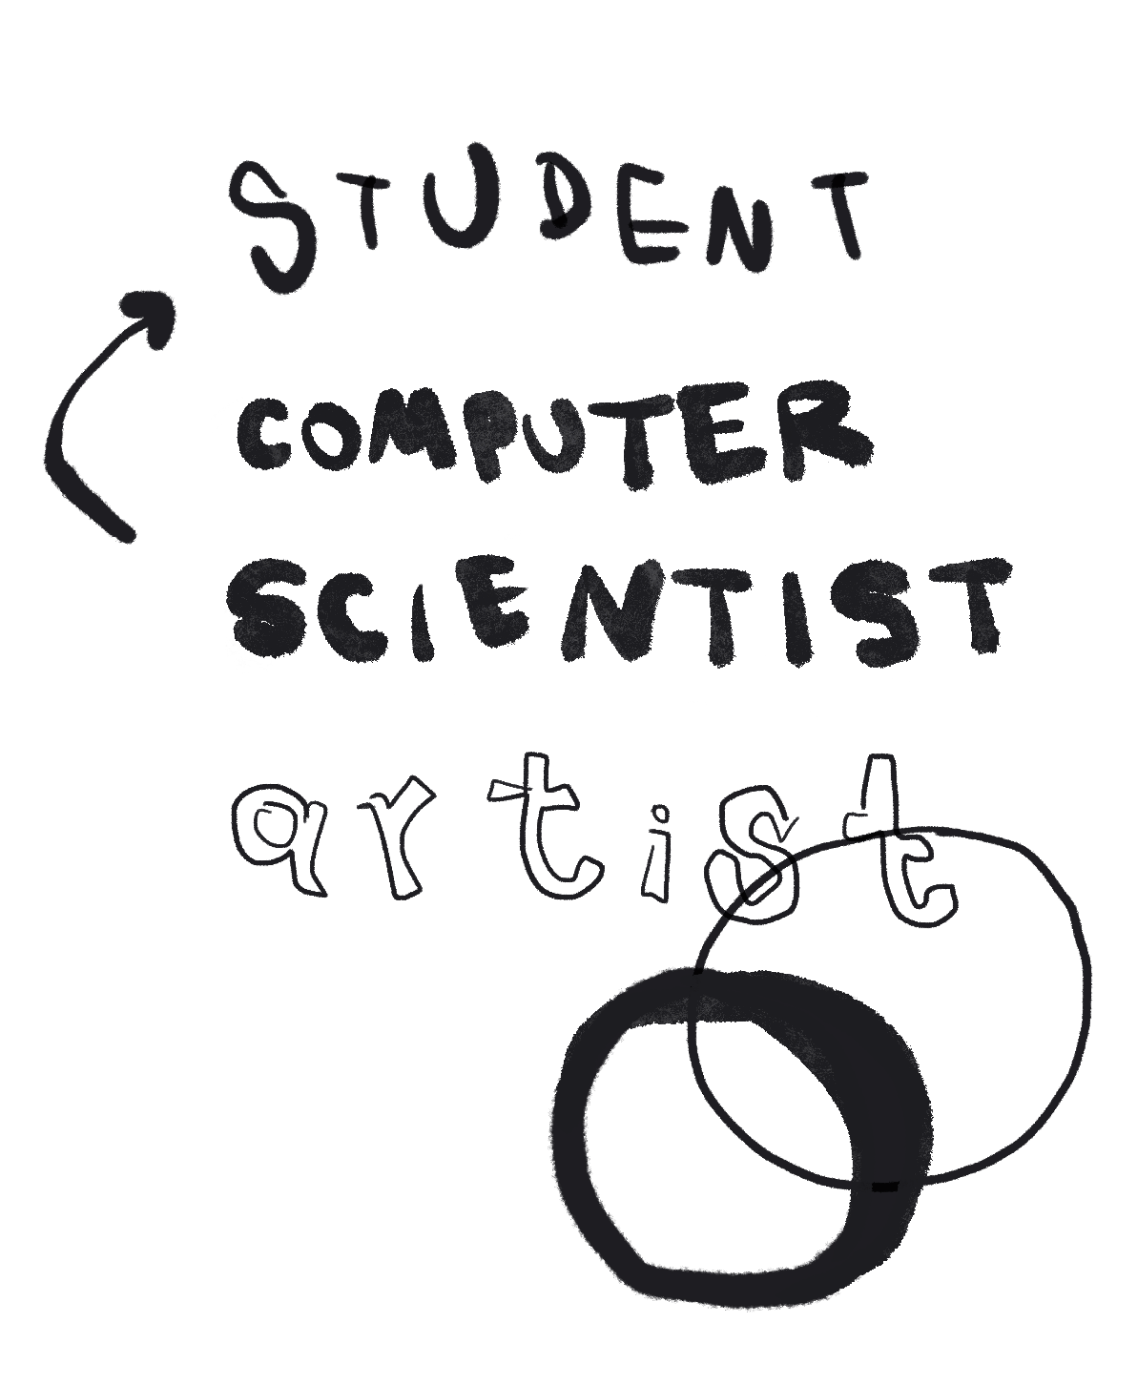 STUDENT
COMPUTER
SCIENTIST
artist